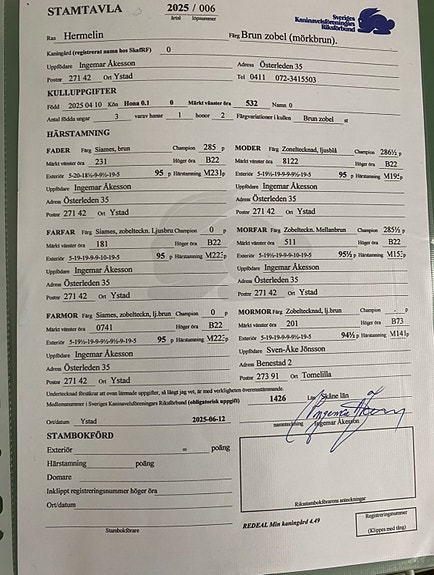 STAMTAVLA 2025 / 006 Sveriges
årtal löpnummer Kaninavelsföreningars
Riksförbund
Ras Hermelin Färg Brun zobel (mörkbrun).
Kaningård (registrerat namn hos SkafRF) 0
Uppfödare Ingemar Åkesson Adress Österleden 35
Postnr 271 42 Ort Ystad Tel 0411 072-3415503
KULLUPPGIFTER
Född 2025 04 10 Kön Hona 0.1 0 Märkt vänster öra 532 Namn 0
Antal födda ungar 3 varav hanar 1 honor 2 Färgvariationer i kullen Brun zobel st
HÄRSTAMNING
FADER Färg Siames, brun Champion 285 p MODER Färg Zoneltecknad, ljusblå Champion 286½ p
Märkt vänster öra 231 Höger öra B22 Märkt vänster öra 8122 Höger öra B22
Exteriör 5-20-18½-9-9½-19-5 95 p Härstamning M231 p Exteriör 5-19½-19-9-9½-19-5 95 p Härstamning M195 p
Uppfödare Ingemar Åkesson Uppfödare Ingemar Åkesson
Adress Österleden 35 Adress Österleden 35
Postnr 271 42 Ort Ystad Postnr 271 42 Ort Ystad
FARFAR Färg Siames, zobelteckn. Ljusbrun Champion 0 p MORFAR Färg Zobelteckn. Mellanbrun Champion 285½ p
Märkt vänster öra 181 Höger öra B22 Märkt vänster öra 511 Höger öra B22
Exteriör 5-19-19½-9-9-10-19-5 95 p Härstamning Exteriör 5-19½-19-9-9-10-19-5 95½ p Härstamning
Uppfödare Ingemar Åkesson Uppfödare Ingemar Åkesson
Adress Österleden 35 Adress Österleden 35
Postnr 271 42 Ort Ystad Postnr 271 42 Ort Ystad
FARMOR Färg Siames, zobelteckn, lj.brun Champion 0 p MORMOR Färg Zobelteckn, lj.brun Champion p
Märkt vänster öra 0741 Höger öra B22 Märkt vänster öra 201 Höger öra B73
Exteriör 95 p Härstamning Exteriör 5-19-19-9-9½-19-5 94½ p Härstamning
Uppfödare Ingemar Åkesson Uppfödare Sven-Åke Jönsson
Adress Österleden 35 Adress Benestad 2
Postnr 271 42 Ort Ystad Postnr 273 91 Ort Tomelilla
Undertecknad försäkrar att ovan lämnade uppgifter, så långt jag vet, är med verkligheten överensstämmande.
Medlemsnummer i Sveriges Kaninavelsföreningars Riksförbund (obligatorisk uppgift) 1426 Län Skåne län
Ort/datum Ystad 2025-06-12 namnteckning Ingemar Åkesson
STAMBOKFÖRD
Exteriör = poäng
Härstamning poäng
Domare
Inklippt registreringsnummer höger öra
Ort/datum
Stambokförare
Riksstambokförarens anteckningar
REDEAL Min kaningård 4.49
Registreringsnummer
(Klippes med tång)